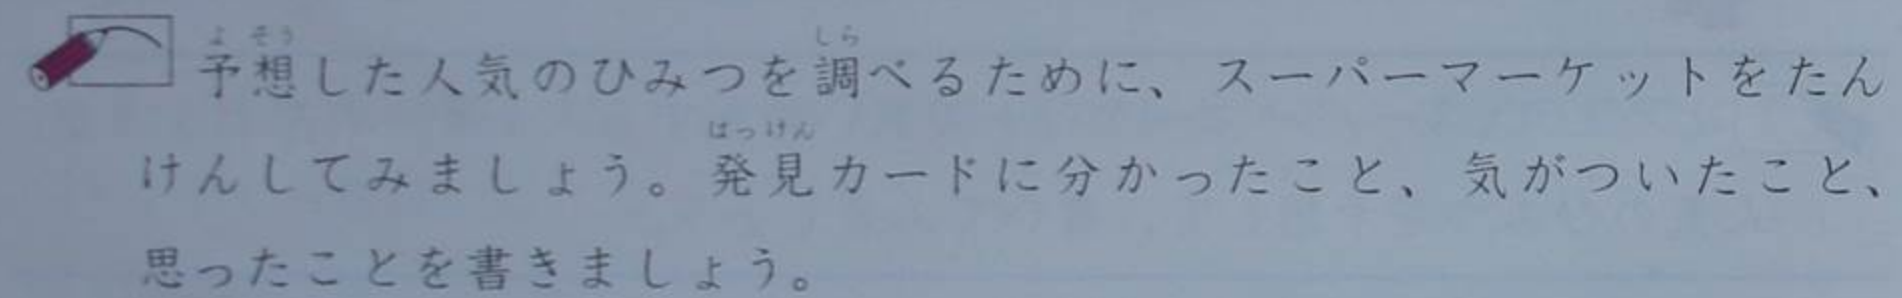 予想した人気のひみつを調べるために、スーパーマーケットをたん
けんしてみましょう。発見カードに分かったこと、気がついたこと、
思ったことを書きましょう。